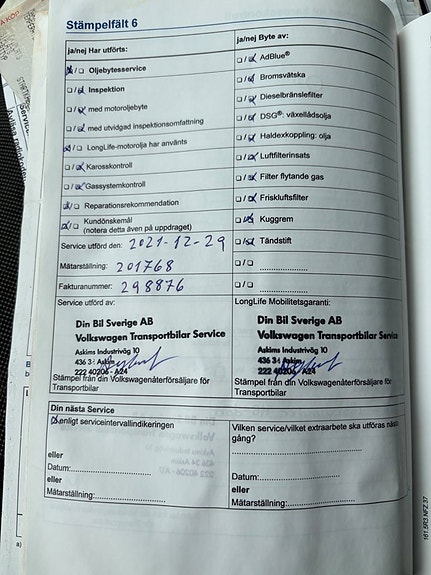 Stämpelfält 6
ja/nej Har utförts:
/ Oljebytesservice
/ Inspektion
/ med motoroljebyte
/ med utvidgad inspektionsomfattning
/ LongLife-motorolja har använts
/ Karosskontroll
/ Gassystemkontroll
/ Reparationsrekommendation
/ Kundönskemål
(notera detta även på uppdraget)
Service utförd den: 2021-12-29
Mätarställning: 201768
Fakturanummer: 298876
ja/nej Byte av:
/ AdBlue®
/ Bromsvätska
/ Dieselbränslefilter
/ DSG®: växellådsolja
/ Haldexkoppling: olja
/ Luftfilterinsats
/ Filter flytande gas
/ Friskluftsfilter
Kuggrem
/ Tändstift
/ ....................
/ ....................
Service utförd av:
Din Bil Sverige AB
Volkswagen Transportbilar Service
Askims Industriväg 10
436 34 Askim
222 40206 - A24
Stämpel från din Volkswagenåterförsäljare för
Transportbilar
LongLife Mobilitetsgaranti:
Din Bil Sverige AB
Volkswagen Transportbilar Service
Askims Industriväg 10
436 34 Askim
222 40206 - A24
Stämpel från din Volkswagenåterförsäljare för
Transportbilar
Din nästa Service
enligt serviceintervallindikeringen
eller
Datum:
eller
Mätarställning:
Vilken service/vilket extraarbete ska utföras nästa
gång?
Datum:
eller
Mätarställning:
161.5R3.NFZ.37
a)